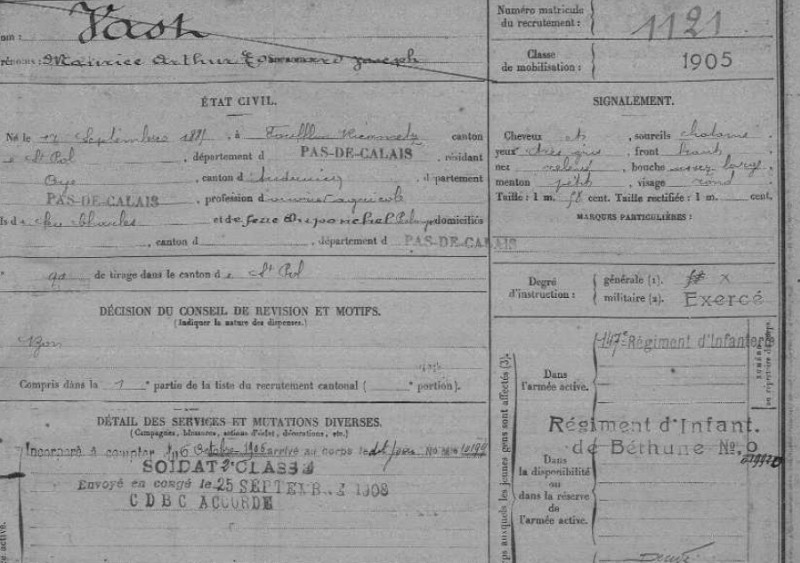 Vast
Maurice Arthur Edouard Joseph
Numéro matricule
du recrutement :
1121
Classe
de mobilisation :
1905
ÉTAT CIVIL.
Né le 17 Septembre 188 , à canton
e St Pol , département d PAS-DE-CALAIS , résidant
Oye , canton d , département
PAS-DE-CALAIS , profession d
ls d e feu Charles et de feue Duponchel domiciliés
, canton d , département d PAS-DE-CALAIS
90 de tirage dans le canton d e St Pol
DÉCISION DU CONSEIL DE REVISION ET MOTIFS.
(Indiquer la nature des dispenses.)
Bon
Compris dans la 1 e partie de la liste du recrutement cantonal ( e portion).
DÉTAIL DES SERVICES ET MUTATIONS DIVERSES.
(Campagnes, blessures, actions d'éclat, décorations, etc.)
Incorporé à compter du 6 Octobre 1906 arrivé au corps le dit jour No Mle
SOLDAT 2e CLASSE
Envoyé en congé le 25 SEPTEMBRE 1908
C D B C ACCORDÉ
SIGNALEMENT.
Cheveux et , sourcils chatains
yeux gris , front haut
nez relevé , bouche assez large
menton petit , visage rond
Taille : 1 m. 58 cent. Taille rectifiée : 1 m. cent.
MARQUES PARTICULIÈRES :
Degré
d'instruction :
générale (1).
militaire (2). Exercé
Dans
l'armée active.
147e Régiment d'Infanterie
Régiment d'Infant.
de Béthune No.
Dans
la disponibilité
ou
dans la réserve
de
l'armée active.